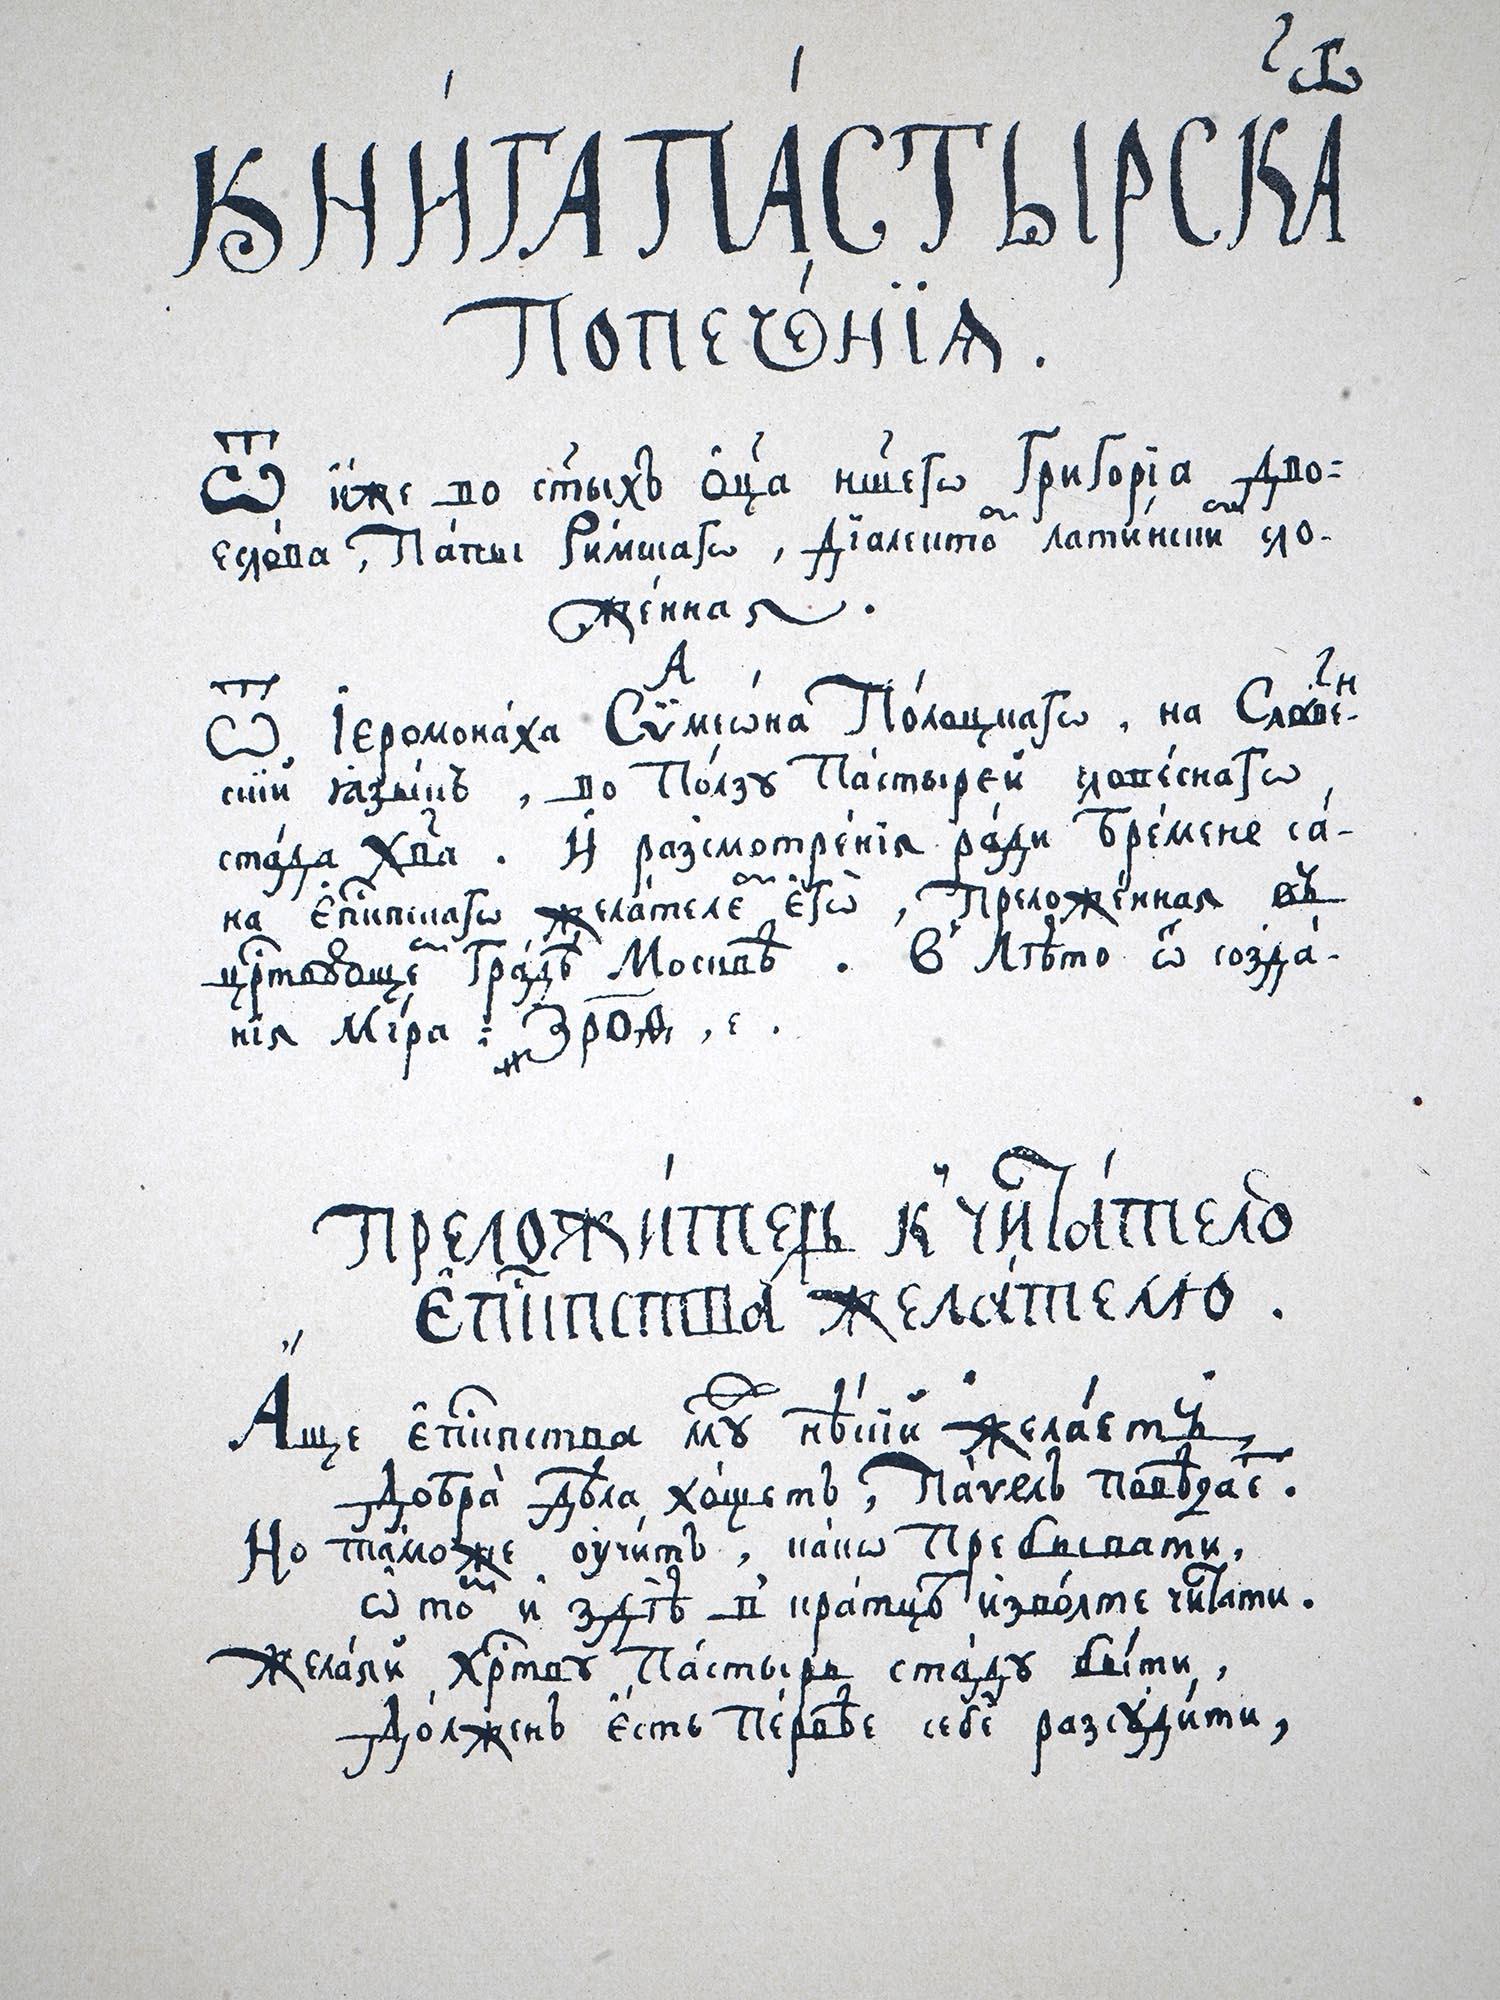 КНИ́ГА ПА́СТЫРСКАГѠ
ПОПЕЧЕ́НЇѦ.
Ѿ и҆́же во ст҃ыхъ ѻ҆ц҃а нш҃егѡ Григорїа Дво-
есло́ва, Па́пы Ри́мскагѡ, дїалектоⷨ лати́нскиⷨ сло-
же́ннаѧ.
А
Ѿ І҆еромона́ха Сѷмеѡ́на По́лоцкагѡ, на Слове́нⷩ-
скїй ꙗ҆зы́къ, во По́лзу Па́стырей слове́снагѡ
ста́да Хв҃а. И҆ разсмотре́нїѧ ра́ди бре́мене са́-
на Е҆пⷭ҇кпскагѡ жела́телеⷨ є҆гѡ̀, Преложе́ннаѧ въ
црⷭ҇твꙋюще́ⷨ Гра́дѣ Москвѣ̀. В̾ Лѣ́то ѿ созда́-
нїѧ Мі́ра: ҂ЗРОА, е.
ПРЕЛОЖИ́ТЕЛЬ К̾ ЧИТА́ТЕЛЮ
Е҆Пⷭ҇КПСТВА ЖЕЛА́ТЕЛЮ.
А҆́ще Е҆пⷭ҇кпства мꙋⷤ нѣ́кїй жела́етъ,
Добра̀ дѣ́ла хо́щетъ, Па́ѵелъ повѣ́даеⷮ.
Но та́може ᲂу҆чи́тъ, ка́кѡ Пребывати,
ѡ҆ тоⷨ и҆ здѣ̀ в̾ кра́тцѣ и҆зво́лте чита́ти.
Жела́ѧй Хрⷭ҇тву Па́стырь ста́ду бы́ти,
До́лженъ є҆́сть Пе́рвѣе себѐ разсꙋди́ти,